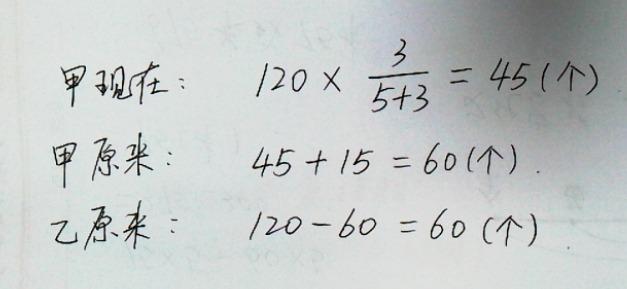 甲现在： 120 × 3/(5+3) = 45(个)
甲原来： 45 + 15 = 60(个).
乙原来： 120 - 60 = 60(个).